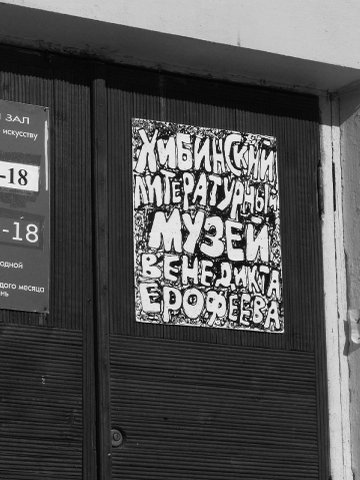 ЗАЛ
искусству
-18
-18
одной
дого месяца
нь
ХИБИНСКИЙ
ЛИТЕРАТУРНЫЙ
МУЗЕЙ
ВЕНЕДИКТА
ЕРОФЕЕВА